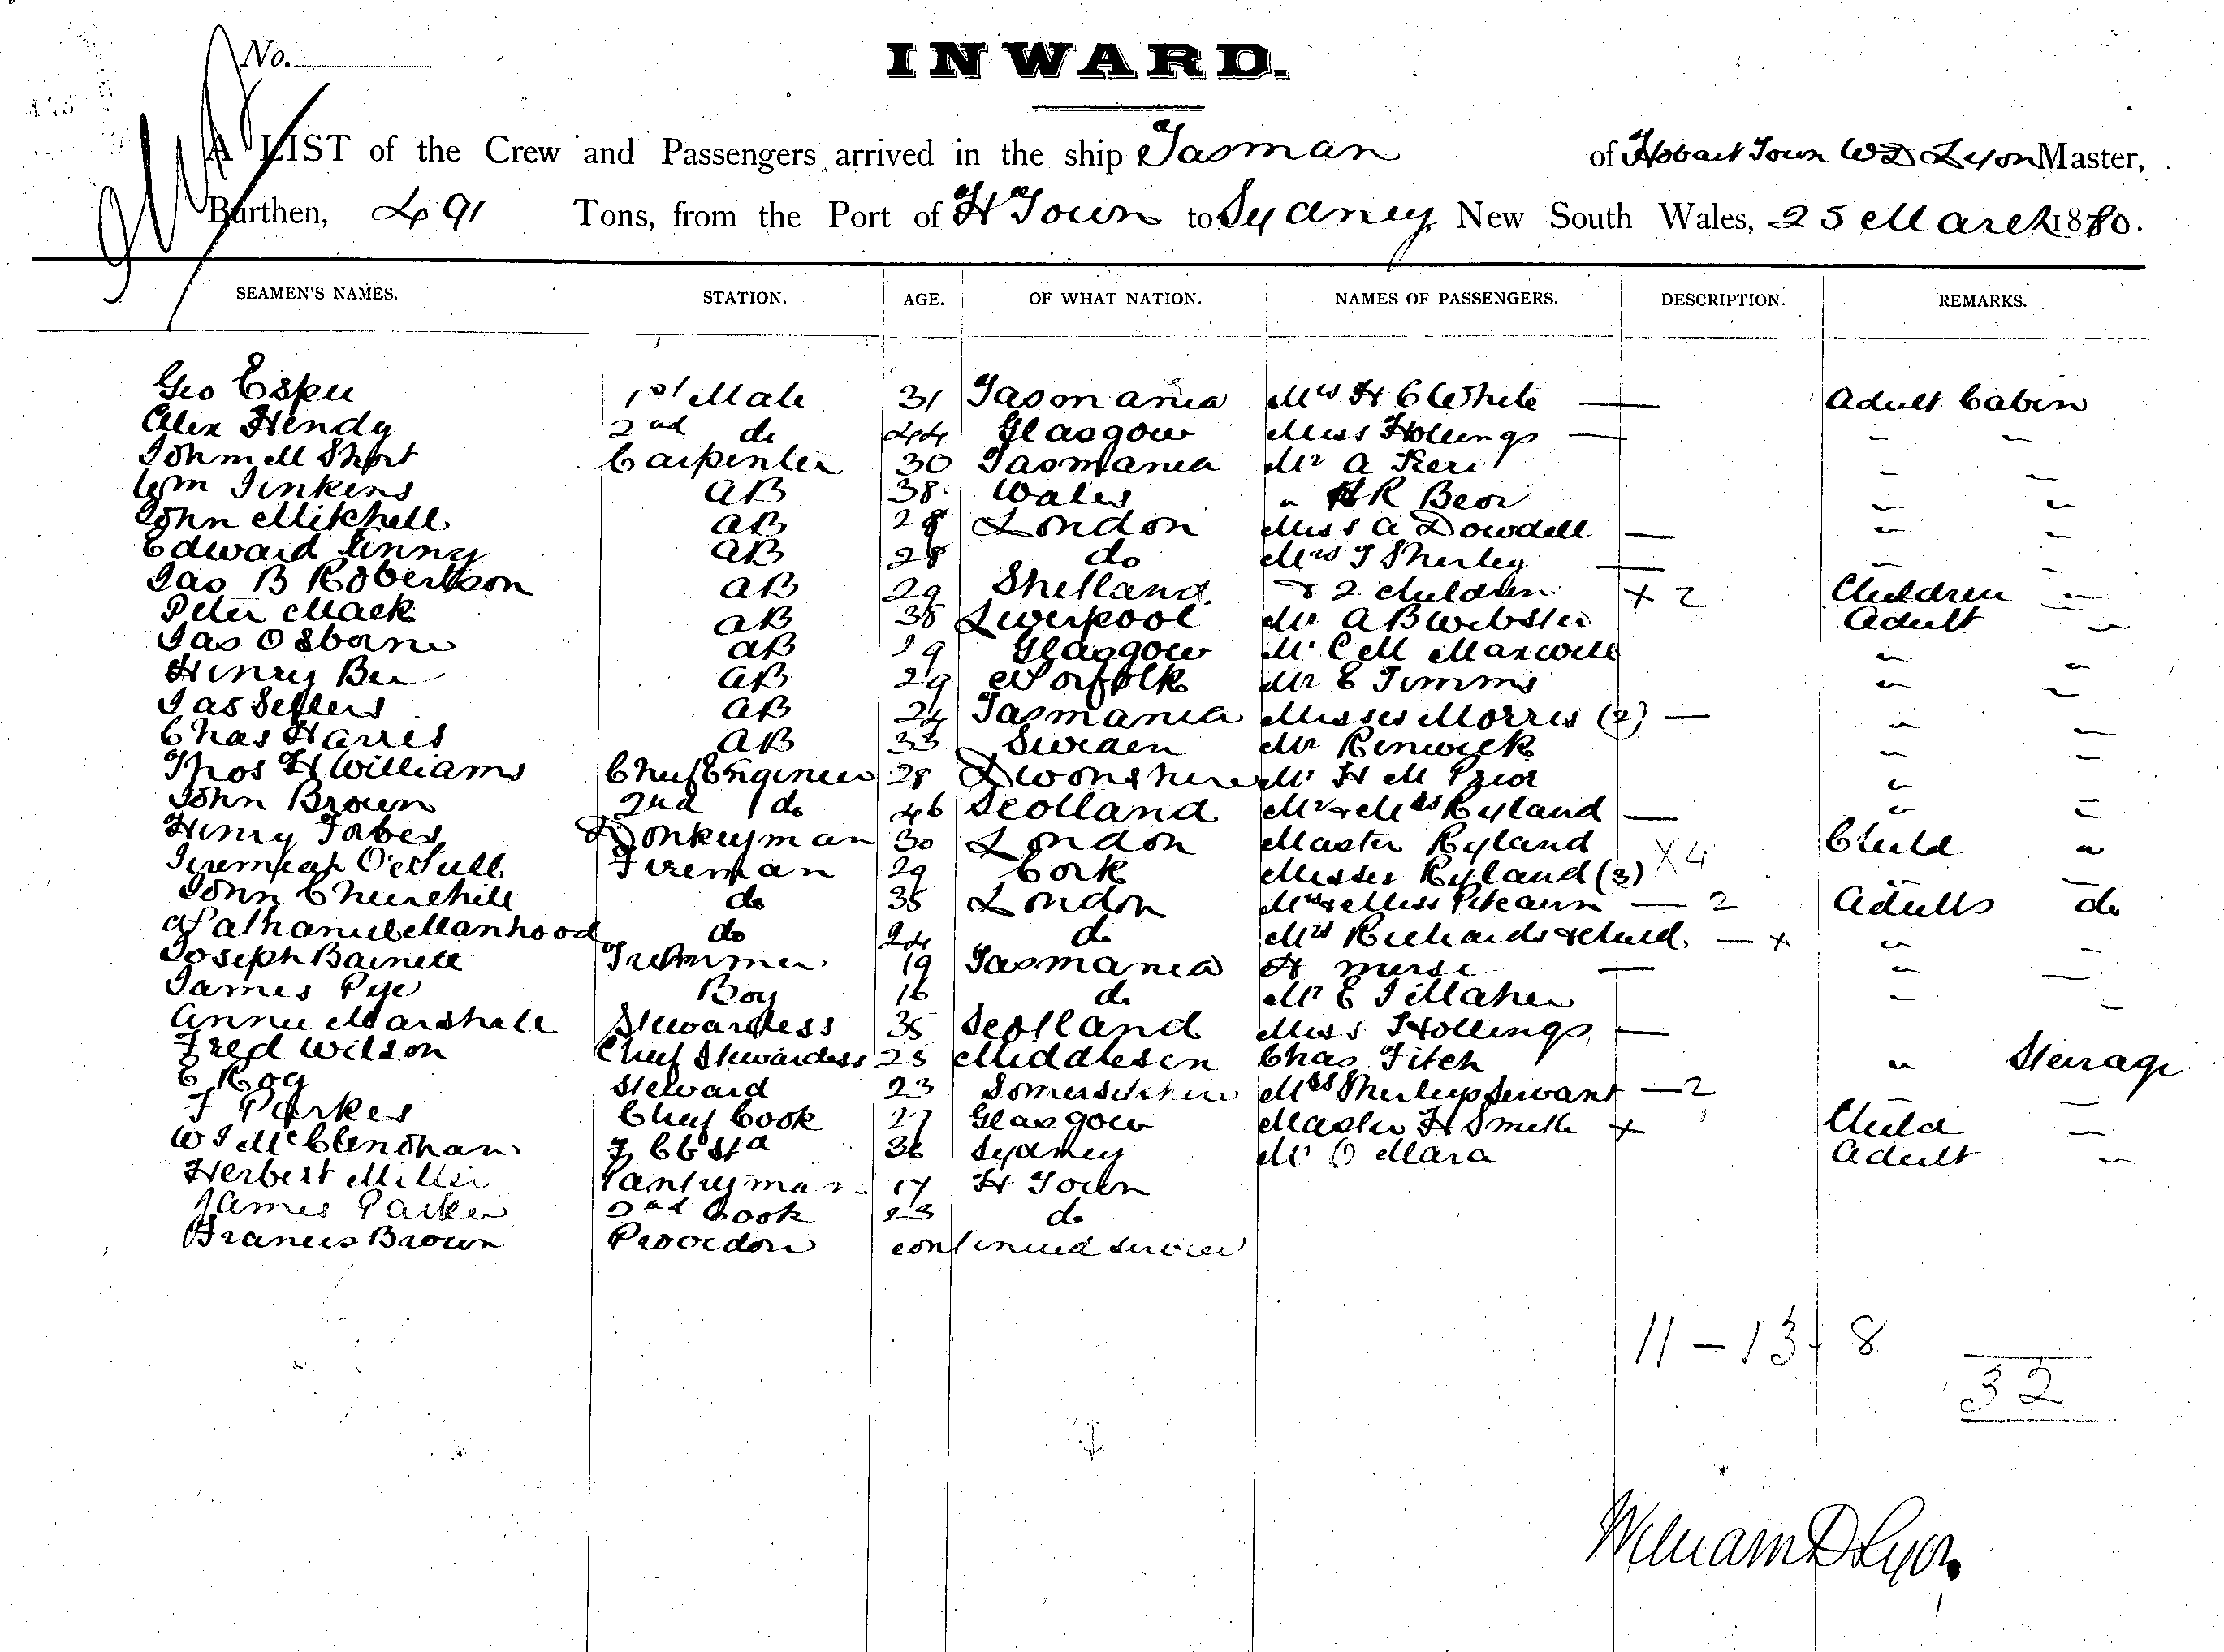 No.
INWARD.
A LIST of the Crew and Passengers arrived in the ship Tasman of Hobart Town W D Lyon Master,
Burthen, 491 Tons, from the Port of H Town to Sydney New South Wales, 25 March 1880.
SEAMEN'S NAMES. STATION. AGE. OF WHAT NATION. NAMES OF PASSENGERS. DESCRIPTION. REMARKS.
Geo Espie 1st Mate 31 Tasmania Mrs H C White — Adult Cabin
Alex Hendy 2nd do 44 Glasgow Miss Hollings — " "
John M Short Carpenter 30 Tasmania Mr A Kerr " "
Wm Jinkens AB 38 Wales " R Beor " "
John Mitchell AB 28 London Miss A Dowdell — " "
Edward AB 28 do Mrs T Sherley — " "
Jas B Robertson AB 29 Shetland & 2 children + 2 Children "
Peter Mack AB 38 Liverpool Mr A B Webster Adult "
Jas Osborne AB 29 Glasgow Mr C M Maxwell " "
Henry Bee AB 29 Norfolk Mr E Timms " "
Jas Sellers AB 24 Tasmania Misses Morris (2) — " "
Chas Harris AB 33 Sweden Mr Renwick " "
Thos H Williams Chief Engineer 28 Devonshire Mr H M Prior " "
John Brown 2nd do 46 Scotland Mr & Mrs Ryland — " "
Henry Donkeyman 30 London Master Ryland Child "
Jeremiah O'Neill Fireman 29 Cork Misses Ryland (3) X 4 " "
John Churchill do 35 London Mrs & Miss Pitcairn — 2 Adults do
Nathaniel Manhood do 24 do Mrs Richards & child. — + " "
Joseph Barnett Trimmer 19 Tasmania & nurse — " "
James Pye Boy 16 do Mr E J Maher " "
Annie Marshall Stewardess 35 Scotland Miss Hollings, —
Fred Wilson Chief Stewardess 25 Middlesex Chas Fitch " Steerage
E Steward 23 Somersetshire Mrs Sherleys Servant — 2 " "
F Parkes Chief Cook 27 Glasgow Master H Smith + Child "
W J McClenohan 36 Sydney Mr O Mara Adult "
Herbert Miller Pantryman 17 H Town
James Parker 2nd Cook 23 do
Francis Brown Providore continued service
11 – 13 + 8
32
William D Lyon